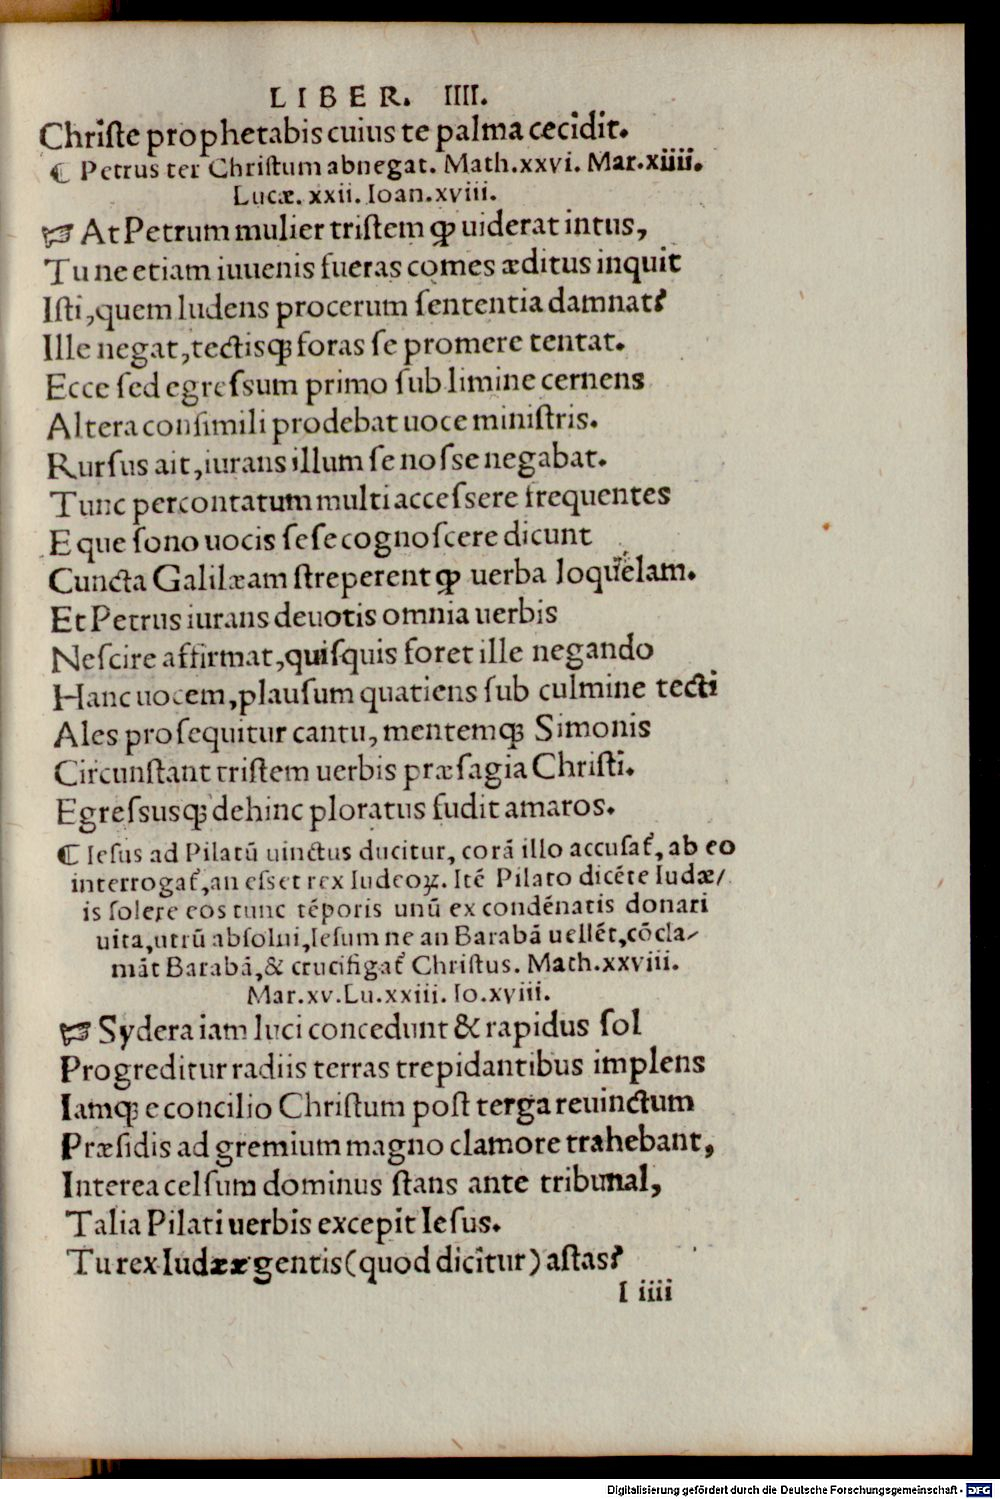 LIBER. IIII.
Chriſte prophetabis cuius te palma cecidit.
¶ Petrus ter Chriſtum abnegat. Math.xxvi. Mar.xiiii.
Lucæ. xxii. Ioan.xviii.
☞ At Petrum mulier triſtem ꝙ uiderat intus,
Tu ne etiam iuuenis fueras comes æditus inquit
Iſti,quem ludens procerum ſententia damnat?
Ille negat,tectisqꝫ foras ſe promere tentat.
Ecce ſed egreſsum primo ſub limine cernens
Altera conſimili prodebat uoce miniſtris.
Rurſus ait,iurans illum ſe noſse negabat.
Tunc percontatum multi acceſsere frequentes
E que ſono uocis ſeſe cognoſcere dicunt
Cuncta Galilæam ſtreperent ꝙ uerba loquelam.
Et Petrus iurans deuotis omnia uerbis
Neſcire affirmat,quiſquis foret ille negando
Hanc uocem,plauſum quatiens ſub culmine tecti
Ales proſequitur cantu, mentemqꝫ Simonis
Circunſtant triſtem uerbis præſagia Chriſti.
Egreſsusqꝫ dehinc ploratus fudit amaros.
¶ Ieſus ad Pilatū uinctus ducitur, corā illo accuſat᷑, ab eo
interrogat᷑,an eſset rex Iudeoꝝ. Itē Pilato dicēte Iudæ/
is ſolere eos tunc tēporis unū ex condēnatis donari
uita,utrū abſolui,Ieſum ne an Barabā uellēt,cōcla/
māt Barabā,& crucifigat᷑ Chriſtus. Math.xxviii.
Mar.xv.Lu.xxiii. Io.xviii.
☞ Sydera iam luci concedunt & rapidus ſol
Progreditur radiis terras trepidantibus implens
Iamqꝫ e concilio Chriſtum poſt terga reuinctum
Præſidis ad gremium magno clamore trahebant,
Interea celſum dominus ſtans ante tribunal,
Talia Pilati uerbis excepit Ieſus.
Tu rex Iudææ gentis(quod dicitur) aſtas?
I iiii
Digitalisierung gefördert durch die Deutsche Forschungsgemeinschaft - DFG